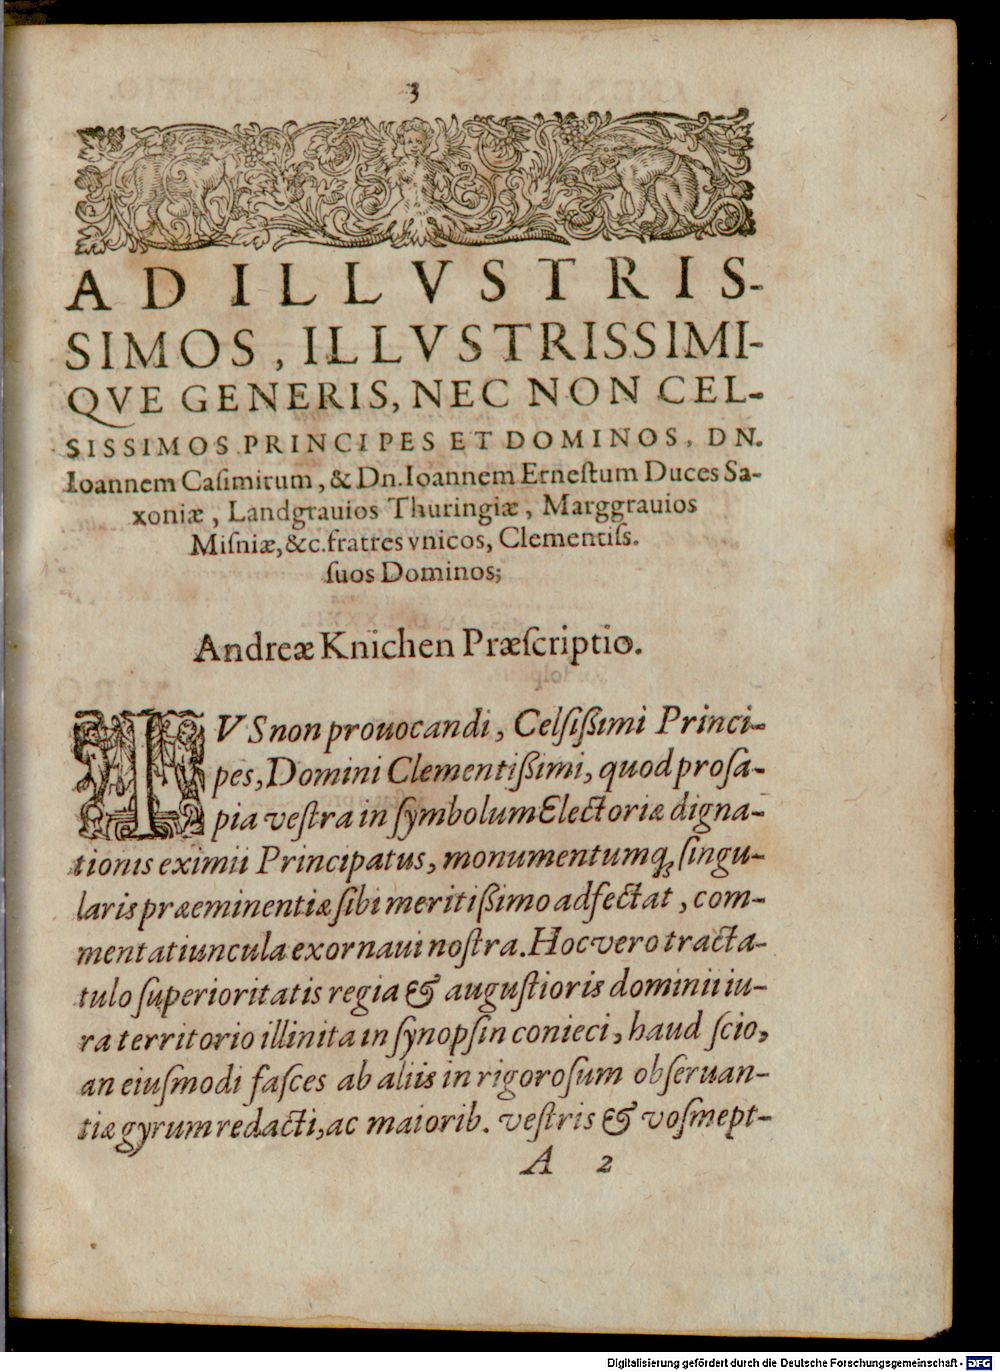 3
AD ILLVSTRIS-
SIMOS, ILLVSTRISSIMI-
QVE GENERIS, NEC NON CEL-
SISSIMOS PRINCIPES ET DOMINOS, DN.
Ioannem Caſimirum, & Dn. Ioannem Erneſtum Duces Sa-
xoniæ, Landgrauios Thuringiæ, Marggrauios
Miſniæ, &c. fratres vnicos, Clementiſs.
ſuos Dominos;
Andreæ Knichen Præſcriptio.
IVS non prouocandi, Celſißimi Princi-
pes, Domini Clementißimi, quod proſa-
pia veſtra in ſymbolum Electoriæ digna-
tionis eximii Principatus, monumentumq́; ſingu-
laris præeminentiæ ſibi meritißimo adfectat, com-
mentatiuncula exornaui noſtra. Hoc vero tracta-
tulo ſuperioritatis regia & auguſtioris dominii iu-
ra territorio illinita in ſynopſin conieci, haud ſcio,
an eiuſmodi faſces ab aliis in rigoroſum obſeruan-
tiæ gyrum redacti, ac maiorib. veſtris & voſmept-
A 2
Digitalisierung gefördert durch die Deutsche Forschungsgemeinschaft - DFG